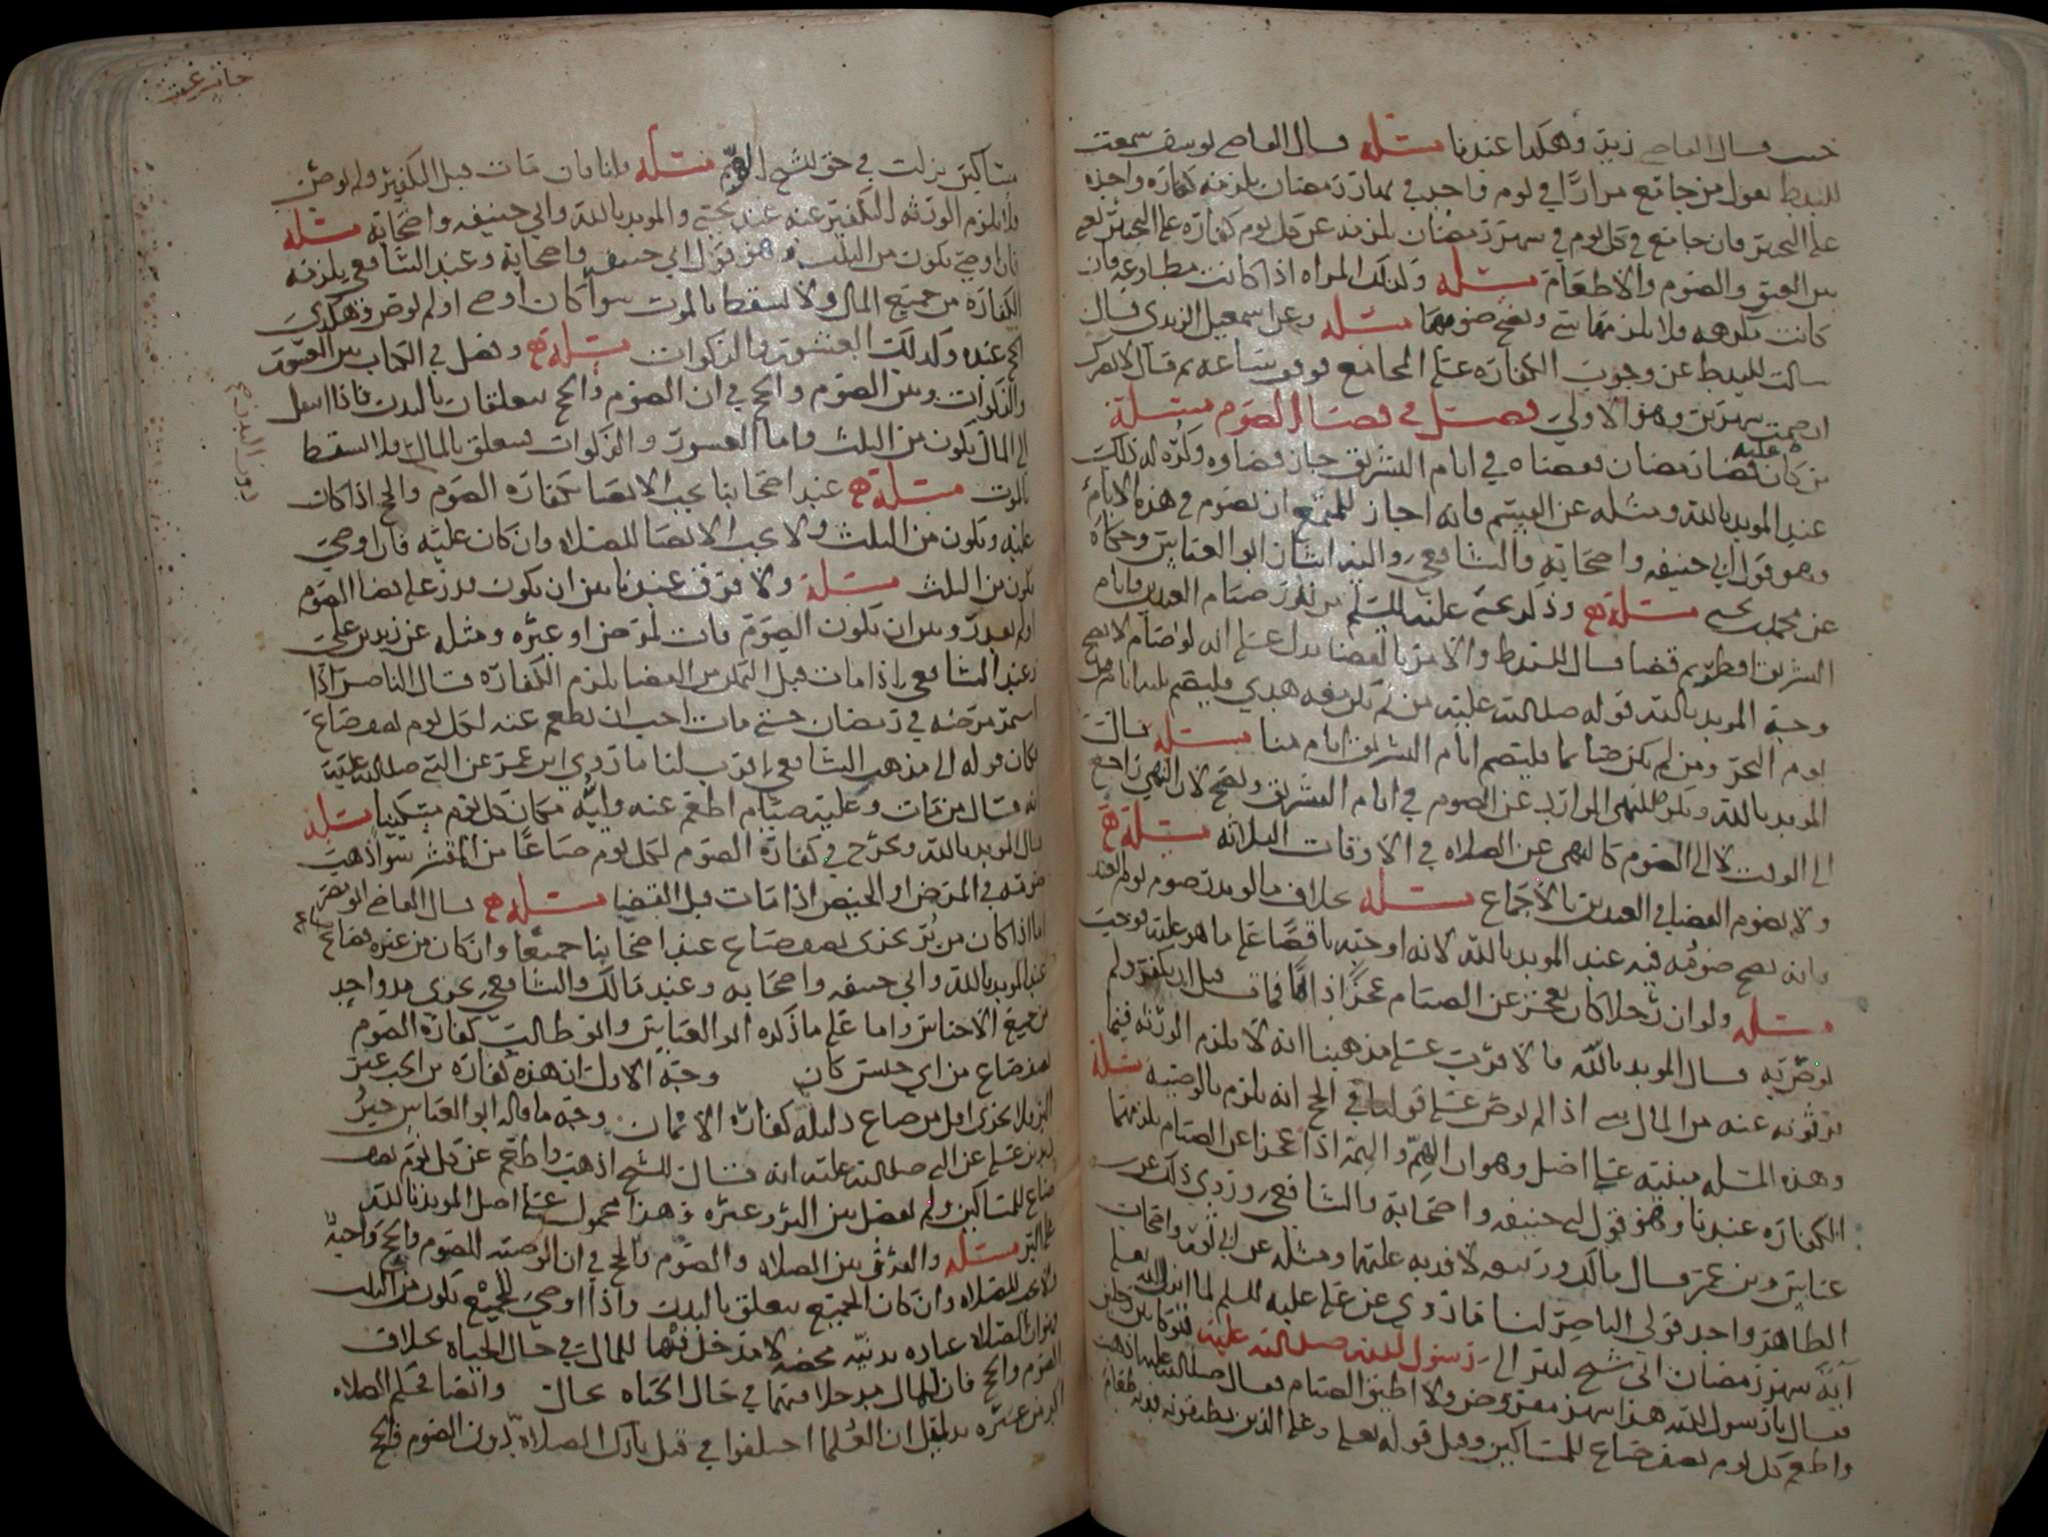 قال القاضي زيد وهكذا عندنا مسئله قال القاضي يوسف سمعت
يقول من جامع مرارا في يوم واحد في نهار رمضان يلزمه كفاره واحده
على التخيير فان جامع في كل يوم في شهر رمضان يلزمه عن كل يوم كفاره على التخيير
بين العتق والصوم والاطعام مسئله وكذلك المراه اذا كانت مطاوعه فان
كانت مكرهه فلا يلزمها شي ويصح صومها مسئله وعن اسمعيل الزيدي قال
سالت عن وجوب الكفاره على المجامع فوقف ساعه ثم قال
شهرين وهو الاولى فصل في قضا الصوم مسئلة
من كان عليه قضا رمضان فقضاه في ايام التشريق جاز قضاوه وكره له ذلك
عند المويد بالله ومثله عن القسم فانه اجاز للمتمتع ان يصوم في هذه الايام
وهو قول ابي حنيفه واصحابه والشافعي واليه اشار ابو العباس وحكاه
عن محمد بن يحيى مسئلة وذكر يحيى عليه السلم من نذر صيام العيدين وايام
التشريق افطر ثم قضا قال والامر بالقضا يدل على انه لو صام لا يصح
وجه المويد بالله قوله صلى الله عليه من لم يكن معه هدي فليصم ثلثه ايام قبل
يوم النحر ومن لم يكن صائما فليصم ايام التشريق ايام منا مسئله قال
المويد بالله ويكره للنهي الوارد عن الصوم في ايام التشريق ويصح لان النهي راجع
الى الوقت لا الى الصوم كالنهي عن الصلاه في الاوقات الثلاثه مسئلة
ولا يصوم القضا في العيدين بالاجماع مسئله بخلاف ما لو نذر صوم يوم العيد
فانه يصح صومه فيه عند المويد بالله لانه اوجبه ناقصا على ما هو عليه
مسئله ولو ان رجلا كان يعجز عن الصيام عجزا دائما فمات قبل ان يكفر ولم
يوص به قال المويد بالله فالاقرب على مذهبنا انه لا يلزم الورثه فيما
يرثونه عنه من المال شي اذا لم يوص على قولنا في الحج انه يلزم بالوصيه مسئلة
وهذه المسله مبنيه على اصل وهو ان الهم والهمة اذا عجزا عن الصيام يلزمهما
الكفاره عندنا وهو قول ابي حنيفه واصحابه والشافعي وروي ذلك عن
عباس وبن عمر وقال مالك وربيعه لا فديه عليهما ومثله عن ابي ثور واصحاب
الظاهر واحد قولي الناصر لنا ما روي عن علي عليه السلم لما انزل الله تعالى
آية شهر رمضان اتى شيخ كبير الى رسول الله صلى الله عليه
فقال يا رسول الله هذا شهر مفروض ولا اطيق الصيام فقال صلى الله عليه اذهب
واطعم كل يوم نصف صاع للمساكين وقيل قوله تعالى وعلى الذين يطيقونه فديه طعام
مساكين نزلت في حق الشيخ الهم مسئلة فان مات قبل التكفير ولم يوص
فلا يلزم الورثه التكفير عنه عند يحيى والمويد بالله وابي حنيفه واصحابه مسئله
فان اوصى يكون من الثلث وهو قول ابي حنيفه واصحابه وعند الشافعي يلزمه
الكفاره من جميع المال ولا يسقط بالموت سوا كان اوصى او لم يوص وهكذى
الحج عنده وكذلك العشور والزكوات مسئلة وفصل في الكتاب بين العشور
والزكوات وبين الصوم والحج في ان الصوم والحج يتعلقان بالبدن فاذا انتقل
الى المال يكون من الثلث واما العشور والزكوات فيتعلق بالمال ولا يسقط
بالموت مسئلة عند اصحابنا يجب الايصا بكفاره الصوم والحج اذا كان
عليه ويكون من الثلث ولا يجب الايصا للصلاه وان كان عليه فان اوصى
يكون من الثلث مسئلة ولا فرق عندنا بين ان يكون قدر على قضا الصوم
او لم يقدر وبين ان يكون الصوم فات لمرض او غيره ومثله عن زيد بن علي
وعند الشافعي اذا مات قبل التمكن من القضا يلزم الكفارة قال الناصر اذا
استمر مرضه في رمضان حتى مات احب ان يطعم عنه لكل يوم نصف صاع
فكان قوله الى مذهب الشافعي اقرب لنا ما روي ابن عمر عن النبي صلى الله عليه
انه قال من مات وعليه صيام اطعم عنه وليه مكان كل يوم مسكينا مسئله
قال المويد بالله ويخرج في كفارة الصوم لكل يوم صاعا من التمر سوا ذهب
صومه في المرض او الحيض اذا مات قبل القضا مسئلة قال القاضي ابو مضر
اما اذا كان من بر يجزى نصف صاع عند اصحابنا جميعا وان كان من غيره فصاع
عند المويد بالله وابي حنيفه واصحابه وعند مالك والشافعي يجزي مد واحد
من جميع الاجناس واما على ما ذكره ابو العباس وابو طالب كفارة الصوم
نصف صاع من اي جنس كان وجه الاول ان هذه كفاره من الحب غير
البر فلا يجزى اقل من صاع دليله كفارة الايمان وجه ما قاله ابو العباس خبر
زيد بن علي عن النبي صلى الله عليه انه قال للشيخ اذهب واطعم عن كل يوم نصف
صاع للمساكين ولم يفصل بين البر وغيره وهذا محمول على اصل المويد بالله
على البر مسئله والفرق بين الصلاه والصوم والحج في ان الوصيه للصوم والحج واجبة
ولا يجب للصلاه وان كان الجميع يتعلق بالبدن واذا اوصى للجميع يكون من الثلث
ان الصلاه عباده بدنيه محضه لا مدخل فيها للمال في حال الحياه بخلاف
الصوم والحج فان للمال مدخلا فيهما في حال الحياه بحال وايضا فحكم الصلاه
اكبر من غيره بدليل ان العلما اختلفوا في قتل تارك الصلاة دون الصوم والحج
دون البدن